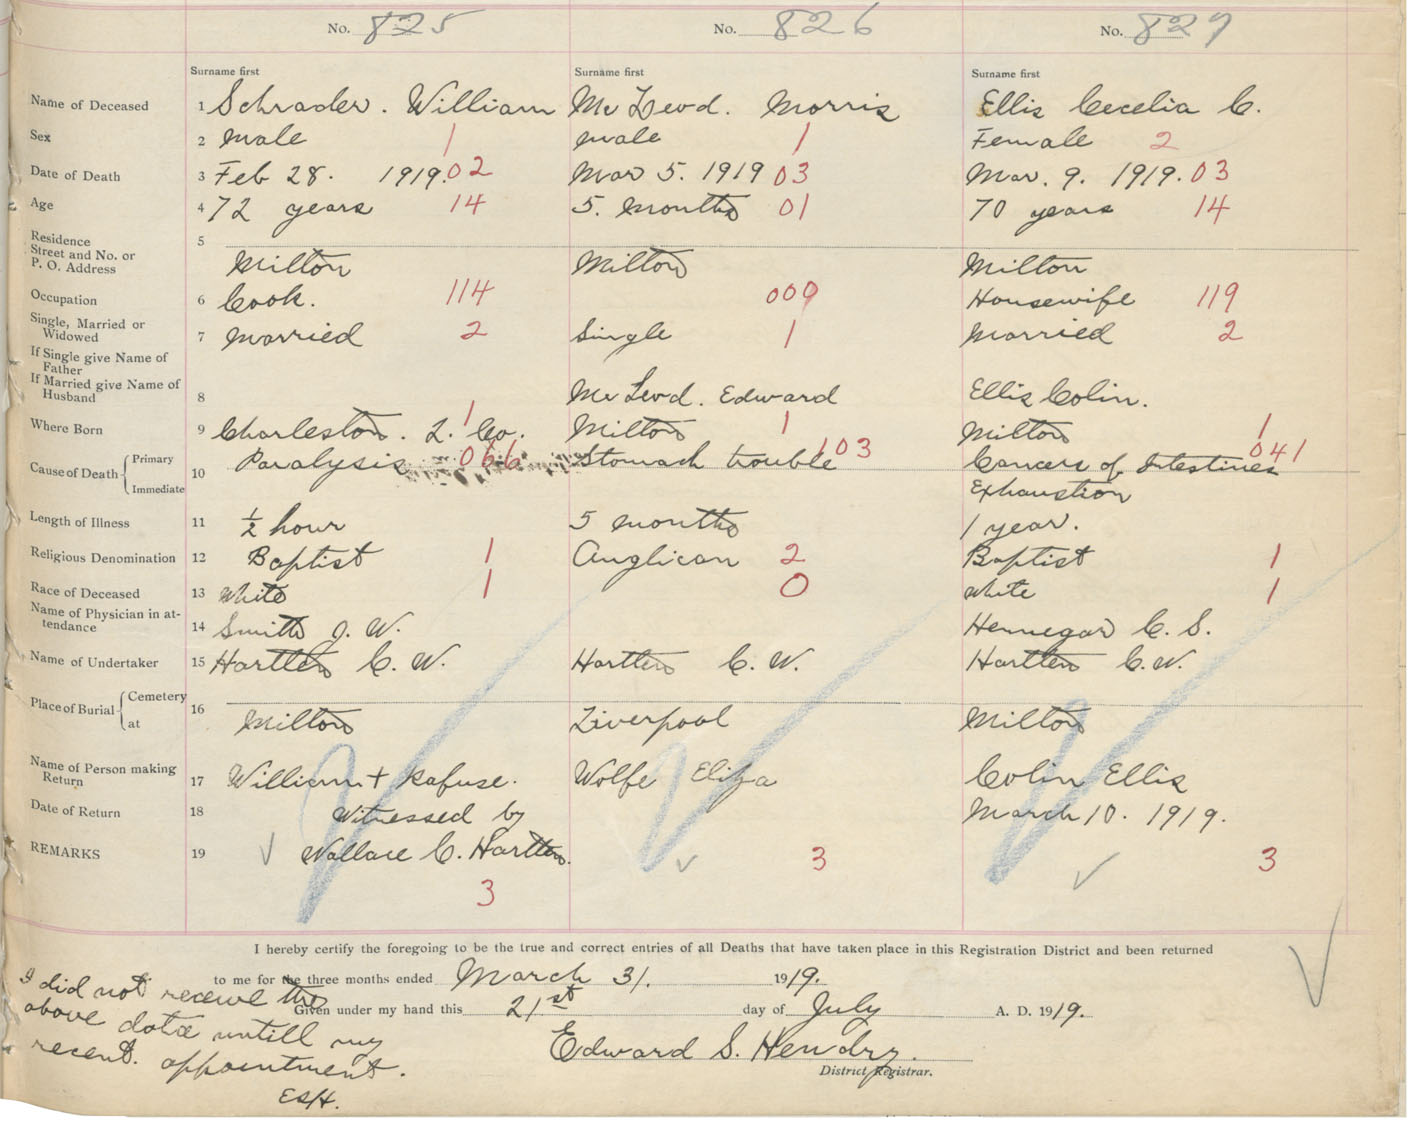 No. 825 No. 826 No. 827
Surname first Surname first Surname first
Name of Deceased 1 Schrader. William Mc Leod. Morris Ellis Cecelia C.
Sex 2 male 1 male 1 Female 2
Date of Death 3 Feb 28. 1919. 02 Mar 5. 1919 03 Mar. 9. 1919. 03
Age 4 72 years 14 5. months 01 70 years 14
Residence 5
Street and No. or
P. O. Address Milton Milton Milton
Occupation 6 Cook. 114 000 Housewife 119
Single, Married or
Widowed 7 married 2 Single 1 married 2
If Single give Name of
Father
If Married give Name of
Husband 8 Mc Leod. Edward Ellis Colin.
Where Born 9 Charleston. 2. Co. 1 Milton 1 Milton 1
Cause of Death Primary 10 Paralysis 066 Stomach trouble 103 Cancer of Intestines 041
Immediate Exhaustion
Length of Illness 11 ½ hour 5 months 1 year.
Religious Denomination 12 Baptist 1 Anglican 2 Baptist 1
Race of Deceased 13 White 1 0 white 1
Name of Physician in at-
tendance 14 Smith J. W. Hennegar C. S.
Name of Undertaker 15 Hartlen C. W. Hartlen C. W. Hartlen C. W.
Place of Burial Cemetery 16
at Milton Liverpool Milton
Name of Person making
Return 17 William + Rafuse. Wolfe Eliza Colin Ellis
Date of Return 18 Witnessed by March 10. 1919.
REMARKS 19 Wallace C. Hartlen. 3 3
3
I hereby certify the foregoing to be the true and correct entries of all Deaths that have taken place in this Registration District and been returned
to me for the three months ended March 31. 1919.
Given under my hand this 21st day of July A. D. 1919.
Edward S. Hendry.
District Registrar.
I did not receive the
above data untill my
recent. appointment.
ESH.